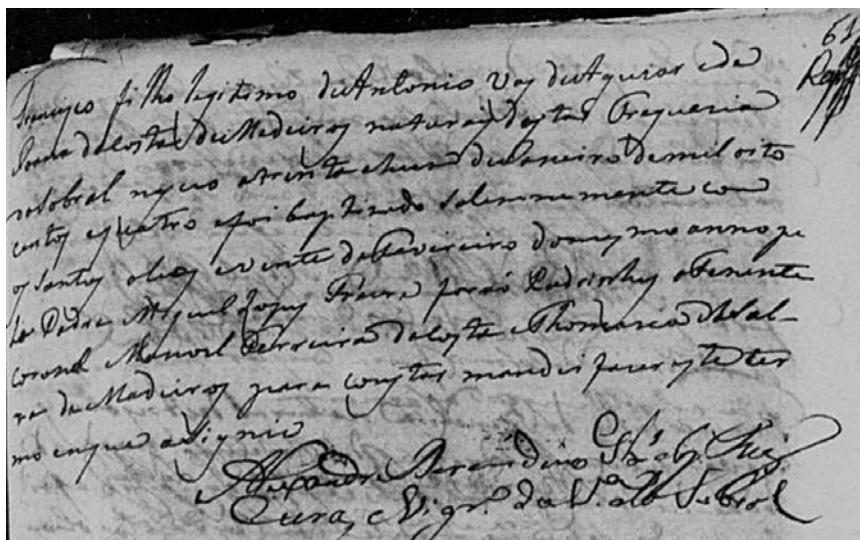 61
Francisco filho legitimo de Antonio Vas de Aguiar e de
Joana da Costa de Madeiros naturaes desta Freguesia
do Sobral nsceo a trinta e hum de Janeiro de mil oito
centos e quatro e foi baptizado solemnemente com
os santos oleos a vinte de Fevereiro do mesmo anno pe
lo Padre Miguel Lopes Freire forão Padrinhos o Tenente
coronel Manoel Ferreira da Costa e Thomasia
de Madeiros para constar mandei fazer este ter
mo em que asignei
Alexandre Bernardino
Cura, e Vigr.o da V.a do Sobral